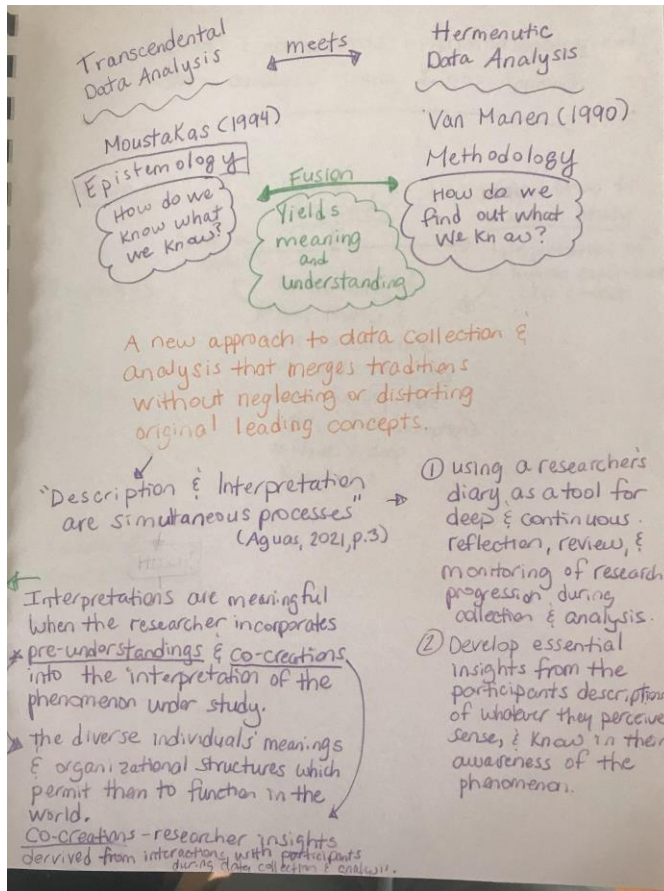 Transcendental
Data Analysis
meets
Hermenutic
Data Analysis
Moustakas (1994)
Epistemology
How do we
know what
we know?
Van Manen (1990)
Methodology
How do we
find out what
we know?
Fusion
Yields
meaning
and
understanding
A new approach to data collection &
analysis that merges traditions
without neglecting or distorting
original leading concepts.
"Description & Interpretation
are simultaneous processes"
(Aguas, 2021, p.3)
Interpretations are meaningful
when the researcher incorporates
* pre-understandings & co-creations
into the interpretation of the
phenomenon under study.
the diverse individuals' meanings
& organizational structures which
permit them to function in the
world.
Co-creations - researcher insights
derived from interactions with participants
during data collection & analysis.
① using a researcher's
diary as a tool for
deep & continuous
reflection, review, &
monitoring of research
progression during
collection & analysis.
② Develop essential
insights from the
participants description
of whatever they perceive
sense, & know in their
awareness of the
phenomenon.